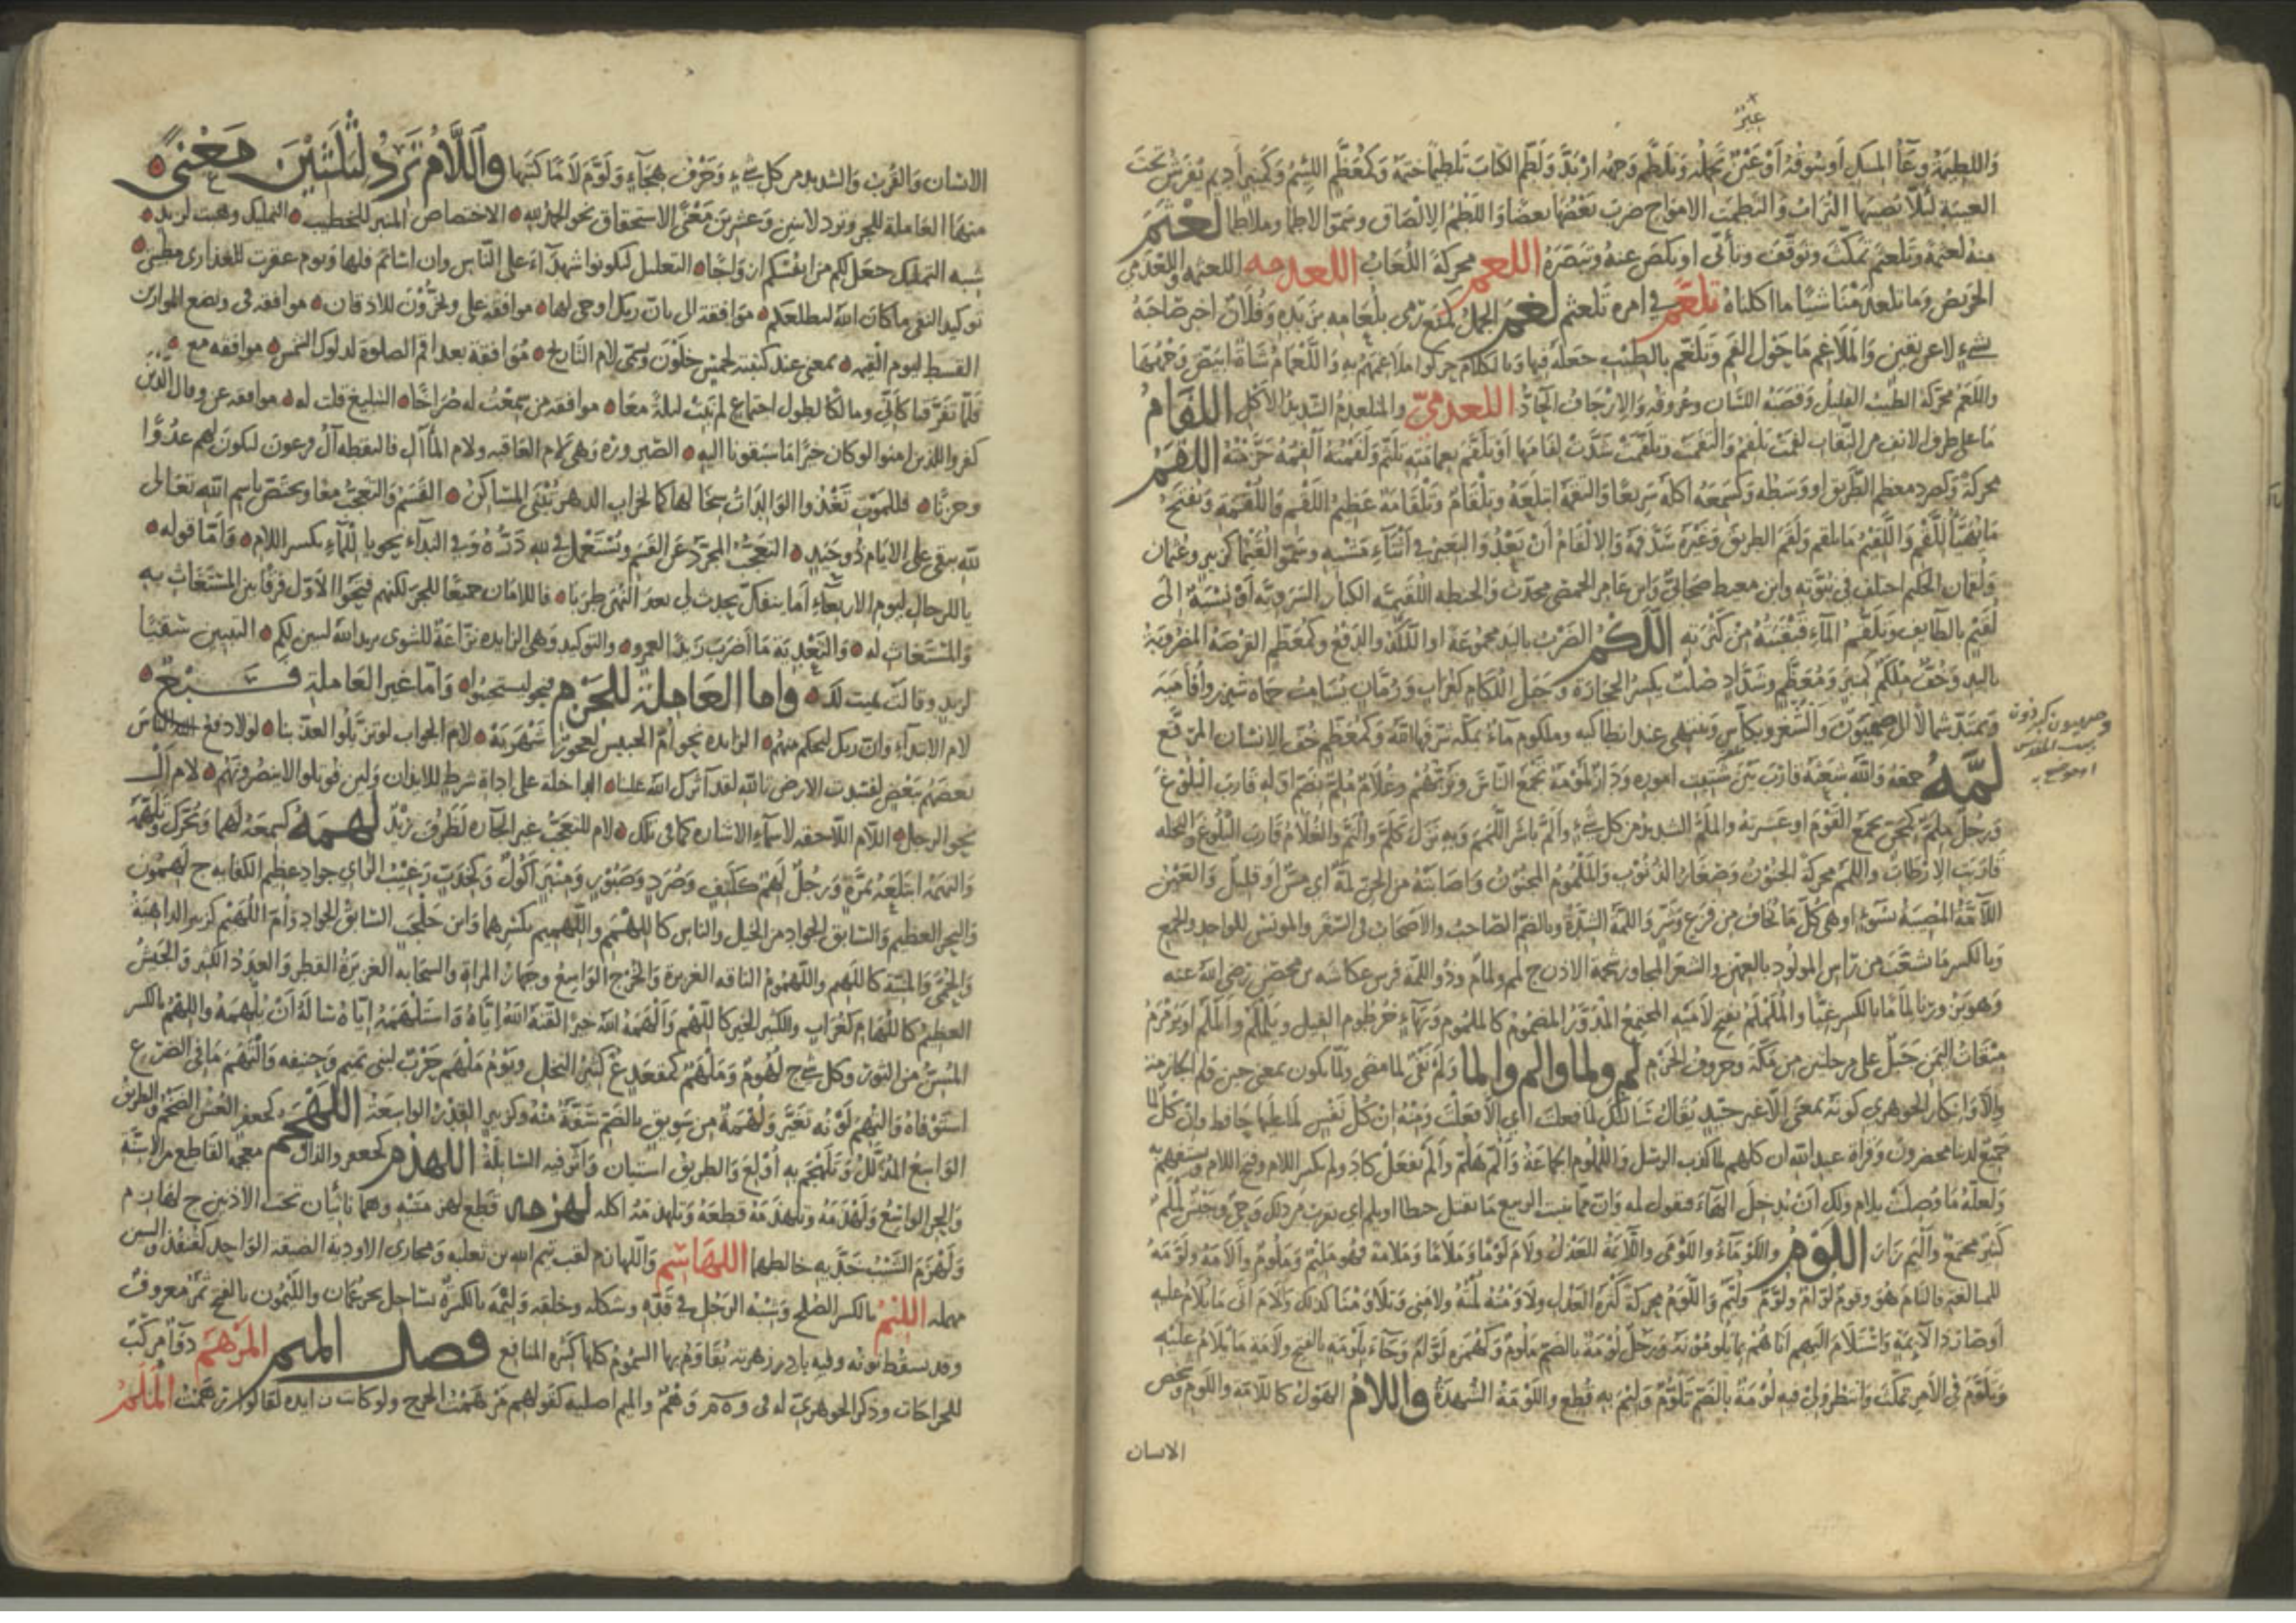 عير
واللطيمة وعاء المسك أو سوقه أو عير تحمله وتلطم وجهه اربد ولطم الكتاب تلطيما ختمه وكمعظم اللئيم وكمنبر أديم يفرش تحت
العيبة لئلا يصيبها التراب والتطمت الامواج ضرب بعضها بعضا واللطيم الالصاق وسموا لاطما وملاطما لعثم
منه لعثمة وتلعثم تمكث وتوقف وتأنى او نكص عنه وتبصره اللعم محركة اللعاب اللعذمه اللعثمة واللعذمي
الحريص وما تلعذمنا شيا ما اكلناه تلعسم في امره تلعثم لغم الجمل كمنع رمى بلغامه زبده وفلان اخبر صاحبه
بشيء لا عن يقين والملاغم ما حول الفم وتلغم بالطيب جعله فيها وبالكلام حركوا ملاغمهم به
واللغم محركة الطيب القليل وقصبة اللسان وعروقه والارجاف الحاد اللغذمي والمتلغذم الشديد الاكل اللفام
ما على طرف الانف من النقاب لفمت تلفم والتفمت وتلفمت شدت لفامها او تلفم بعمامته تلثم اللقم
محركة وكصرد معظم الطريق او وسطه وكسمعه اكله سريعا والتقمه ابتلعه وتلقام وتلقامة عظيم اللقم واللقمة وتفتح
ما يهيأ للقم واللقيم ما يلقم ولقم الطريق وغيره سد فمه والالقام ان يعدو البعير في اثناء مشيه وسموا لقيما كزبير وعثمان
ولقمان الحكيم اختلف في نبوته وابن معيط صحابي وابن عامر الحمصي محدث والحنطة اللقيمية الكبار السروية او نسبة الى
لقيم بالطايف وتلقم الماء قبقبته من كثرته اللكم الضرب باليد مجموعة او اللكز والدفع وكمعظم القرصة المضروبة
باليد وخف ملكم كمنبر ومعظم وشداد صلب يكسر الحجارة وجبل اللكام كغراب ورمان يسامت حماة شيزر وافامية
ويمتد شمالا الى صهيون والشغر وبكاس وينتهي عند انطاكيه وملكوم ماء بمكة شرفها الله وكمعظم خف الانسان المرقع
لمه جمعه والله شعثه قارب بين شتيت اموره ودار لمومة تجمع الناس وتربهم وغلام ملم بضم اوله قارب البلوغ
ورجل ملم كمجن يجمع القوم او عشيرته والملم الشديد من كل شيء والم باشر اللمم وبه نزل كلم والتم والغلام قارب البلوغ والنخله
قاربت الارطاب واللمم محركة الجنون وصغار الذنوب والملموم المجنون واصابته من الجن لمة اي مس او قليل والعين
اللامة المصيبة بسوء او هي كل ما يخاف من فزع وشر واللمة الشدة وبالضم الصاحب والاصحاب في السفر والمونس للواحد والجمع
وبالكسر ما تشعث من راس المولود بالفهر والشعر المجاوز شحمة الاذن ج لمم ولمام وذو اللمة فرس عكاشة بن محصن رضي الله عنه
وهو يزورنا لماما بالكسر غبا والململم بفتح لاميه المجتمع المدور المضموم كالملموم وبهاء خرطوم الفيل ويلملم او الملم او يرمرم
ميقات اليمن جبل على مرحلتين من مكة وحروف الجزم لم ولما والم والما ولم نفي لما مضى ولما تكون بمعنى حين ولم الجازمة
والا وانكار الجوهري كونه بمعنى الا غير جيد يقال سالتك لما فعلت اي الا فعلت ومنه ان كل نفس لما عليها حافظ وان كل لما
جميع لدينا محضرون وقراة عبد الله ان كلهم لما كذب الرسل واللملوم الجماعة والم هلم والم تفعل كاد ولم بكسر اللام وفتح الميم يستفهم به
كثير مجمع والم زار اللوم واللوماء واللومى واللائمة العذل ولام لوما وملاما وملامة فهو مليم وملوم والامه ولومه
للمبالغة فالتام هو وقوم لوام ولوم وليم واللوم محركة كثرة العذل ولاومته لمته ولامني وتلاومنا كذلك والام اتى ما يلام عليه
او صار ذا لائمة واستلام اليهم اتاهم بما يلومونه ورجل لومة بالضم ملوم وكهمزه لوام وجاء بلومة بالفتح ولامة ما يلام عليه
وتلوم في الامر تمكث وانتظر ولي فيه لومة بالضم تلوم وليم به قطع واللومة الشهدة واللام الهول كاللامة واللوم وشخص
الانسان
وصهيون كبرذون
بيت المقدس
او موضع به
الانسان والقرب والشديد من كل شيء وحرف هجاء ولوم لاما كتبها واللام ترد لثلثين معنى
منها العاملة للجر وترد لاثنين وعشرين معنى الاستحقاق نحو الحمد لله الاختصاص المنبر للخطيب التمليك وهبت لزيد
شبه التمليك جعل لكم من انفسكم ازواجا التعليل لتكونوا شهداء على الناس وان اساتم فلها ويوم عقرت للعذارى مطيتي
توكيد النفي ما كان الله ليطلعكم موافقة الى بان ربك اوحى لها موافقة على ويخرون للاذقان موافقة في ونضع الموازين
القسط ليوم القيمة بمعنى عند كتبته لخمس خلون وتسمى لام التاريخ موافقة بعد اقم الصلوة لدلوك الشمس موافقة مع
فلما تفرقنا كاني ومالكا لطول اجتماع لم نبت ليلة معا موافقة من سمعت له صراخا التبليغ قلت له موافقة عن وقال الذين
كفروا للذين امنوا لو كان خيرا ما سبقونا اليه الصيرورة وهي لام العاقبه ولام المآل فالتقطه آل فرعون ليكون لهم عدوا
وحزنا فللموت تغذوا الوالدات سخالها كما لخراب الدهر تبنى المساكن القسم والتعجب معا ويختص باسم الله تعالى
لله يبقى على الايام ذو حيد التعجب المجرد عن القسم ويستعمل في لله دره وفي النداء نحو يا للماء بكسر اللام واما قوله
يا للرجال ليوم الاربعاء اما ينفك يحدث لي بعد النهى طربا فاللامان جميعا للجر لكنهم فتحوا الاول فرقا بين المستغاث به
والمستغاث له والتعدية ما اضرب زيدا لعمرو والتوكيد وهي الزايده نزاعة للشوى يريد الله ليبين لكم التبيين سقيا
لزيد وقالت هيت لك واما العاملة للجزم فنحو ليستجيبوا واما غير العاملة فسبع
لام الابتداء وان ربك ليحكم بينهم الزايده نحو ام الحليس لعجوز شهربة لام الجواب لو تزيلوا لعذبنا لولا دفع الله الناس
بعضهم ببعض لفسدت الارض تالله لقد آثرك الله علينا الداخلة على اداة شرط للايذان ولين قوتلوا لا ينصرونهم لام ال
نحو الرجل اللام اللاحقه لاسماء الاشارة كما في تلك لام التعجب غير الجارة لظرف زيد لهمه كسمعه لهما ويحرك وتلهمه
والتهمه ابتلعه بمرة ورجل لهم ككتف وصرد وصبور ومنبر اكول وكخدب رغيب الراي جواد عظيم الكفايه ج لهمون
والبحر العظيم والسابق الجواد من الخيل والناس كاللهم واللهميم بكسرهما وابن جلحب السابق الجواد وام اللهيم كزبير الداهية
والحمى والمنية كاللهيم واللهموم الناقه الغزيرة والجرح الواسع وجهاز المراة والسحابة الغزيرة القطر والعدد الكثير والجيش
العظيم كاللهام كغراب والكثير الخير كاللهم والهمه الله خيرا لقنه الله اياه واستلهمه اياه ساله ان يلهمه واللهم بالكسر
المسن من الثور وكل شيء ج لهوم وملهم كمقعد ع كثير النخل ويوم ملهم حرب لبني تميم وحنيفه والتهم ما في الضرع
استوفاه والتهم لونه تغير ولهمة من سويق بالضم سفة منه وكزبير القدر الواسعة اللهجم كجعفر العس الضخم والطريق
الواسع المذلل وتلهجم به اولع والطريق استبان واثر فيه السابلة اللهذم كجعفر والذال معجمة القاطع من الاسنة
والحر الواسع ولهذمه وتلهذمه قطعه وتلهذمه اكله لهزمه قطع لهزمتيه وهما ناتيان تحت الاذنين ج لهازم
ولهزم الشيب خديه خالطهما واللهازم لقب تيم الله بن ثعلبه اللهاسم ومجاري الاودية الضيقة الواحد كقنفذ والسين
مهملة الليم بالكسر الصلح وشبه الرجل في قده وشكله وخلقه وليمة بالكسر ة بساحل بحر عمان والليمون بالفتح ثمر معروف
وقد تسقط نونه وفيه بادزهرية تقاوم بها السموم كلها كثيرة المنافع فصل الميم المرهم دواء مركب
للجراحات وذكر الجوهري له في ر ه م وهم والميم اصلية لقولهم مرهمت الجرح ولو كانت زايده لقالوا رهمت الملم